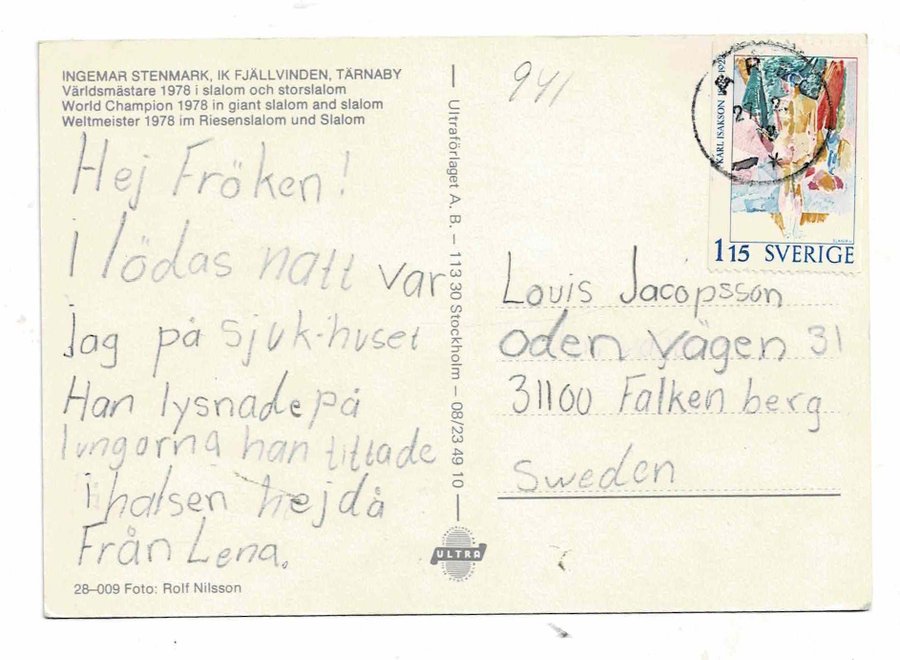 INGEMAR STENMARK, IK FJÄLLVINDEN, TÄRNABY
Världsmästare 1978 i slalom och storslalom
World Champion 1978 in giant slalom and slalom
Weltmeister 1978 im Riesenslalom und Slalom
Hej Fröken!
I lödas natt var
jag på sjuk-huset
Han lysnade på
lungorna han tittade
i halsen hejdå
Från Lena.
28–009 Foto: Rolf Nilsson
Ultraförlaget A. B. – 113 30 Stockholm – 08/23 49 10
ULTRA
941
KARL ISAKSON
115 SVERIGE
Louis Jacopsson
oden vägen 31
31100 Falken berg
Sweden